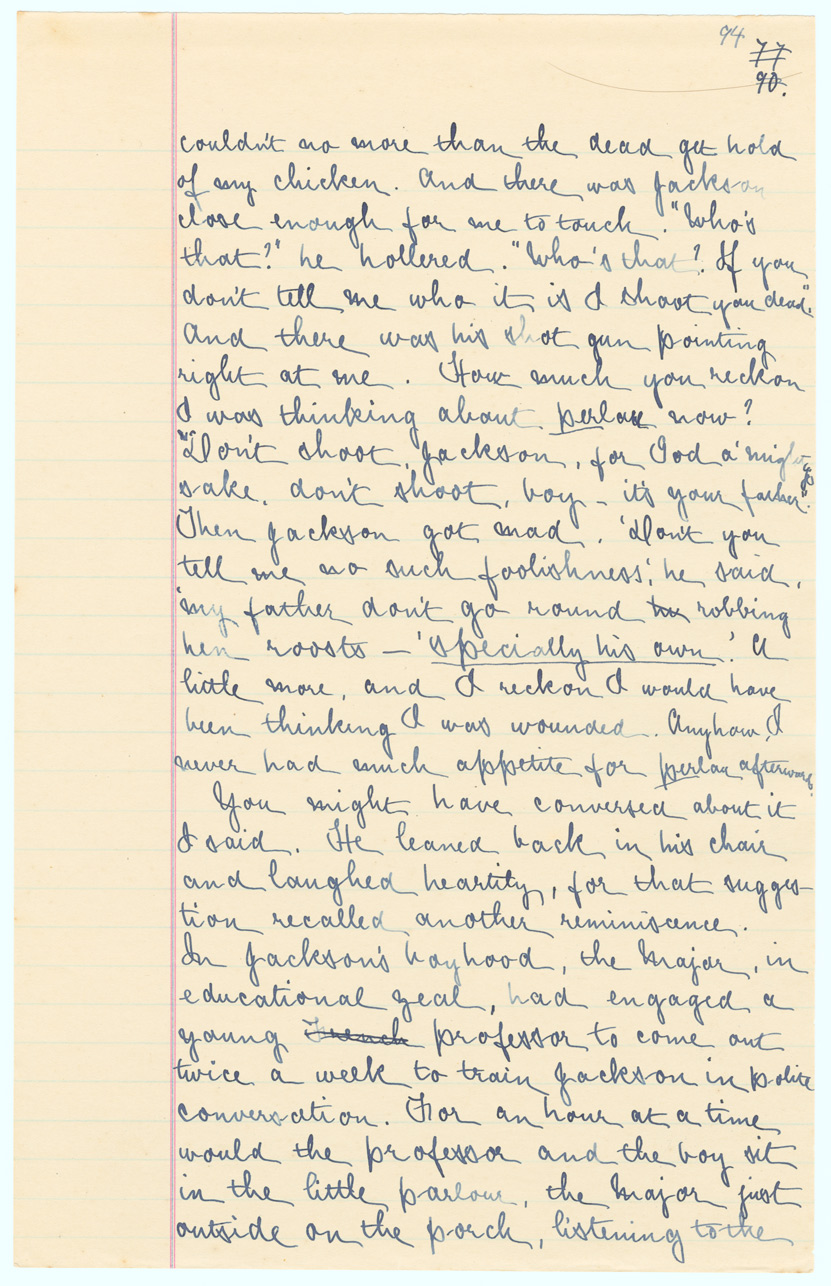 94
77
90.
couldn't no more than the dead get hold
of my chicken. And there was Jackson
close enough for me to touch. "Who's
that?" he hollered. "Who's that? If you
don't tell me who it is I shoot you dead".
And there was his shot gun pointing
right at me. How much you reckon
I was thinking about perlau now?
"Don't shoot, Jackson, for God a'mighty's
sake, don't shoot, boy - it's your father".
Then Jackson got mad. 'Don't you
tell me no such foolishness', he said,
'my father don't go round robbing
hen roosts — 'specially his own'. A
little more, and I reckon I would have
been thinking I was wounded. Anyhow, I
never had much appetite for perlau afterwards.
You might have conversed about it
I said. He leaned back in his chair
and laughed heartily, for that sugges-
tion recalled another reminiscence.
In Jackson's boyhood, the Major, in
educational zeal, had engaged a
young French professor to come out
twice a week to train Jackson in polite
conversation. For an hour at a time
would the professor and the boy sit
in the little parlour, the Major just
outside on the porch, listening to the